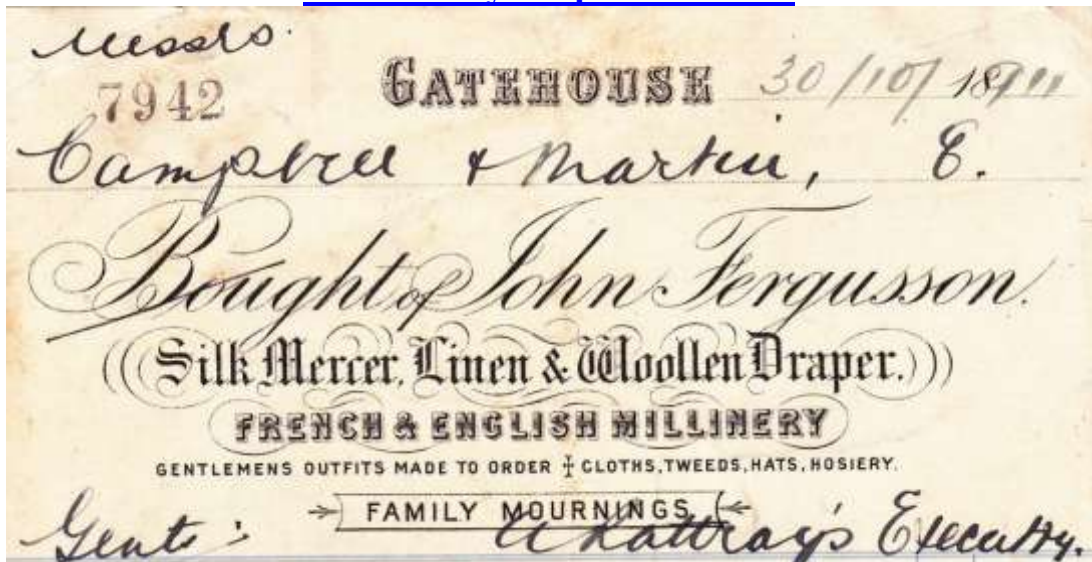 Messrs.
7942
GATEHOUSE 30/10/18
Campbell & Martin, E.
Bought of John Fergusson.
Silk Mercer, Linen & Woollen Draper.
FRENCH & ENGLISH MILLINERY
GENTLEMENS OUTFITS MADE TO ORDER ‡ CLOTHS, TWEEDS, HATS, HOSIERY.
FAMILY MOURNINGS
Gents: Rattray's Executry.